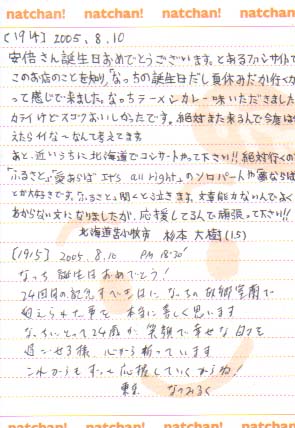 natchan! natchan! natchan! natchan! natchan!
[1914] 2005.8.10
安倍さん誕生日おめでとうございます。とあるファンサイトで
このお店のことを知り、なっちの誕生日だし夏休みだか行くか
って感じで来ました。なっちラーメンカレー味いただきました
カライけどスゴクおいしかったです。絶対また来るんで今度は
えたらイイな〜なんて考えてます。
あと、近いうちに北海道でコンサートやって下さい!!絶対行くので
「ふるさと」、「愛あらば It's all right」のソロパートや
とか大好きです。ふるさと」聞くと心泣きます。文章能力ないんでよく
わからない文になりましたが、応援してるんで頑張って下さい!!
北海道苫小牧市 杉本大樹(15)
[1915] 2005.8.10 PM 18:30
なっち 誕生日おめでとう!
24回目の記念すべき日に なっちの故郷室蘭で
迎えられた事を 本当に嬉しく思います
なっちにとって24歳が 笑顔で幸せな日々を
過ごせる様 心から祈っています
これからもずっと応援していくからね!
東京 なつみるく
natchan! natchan! natchan! natchan! natchan!